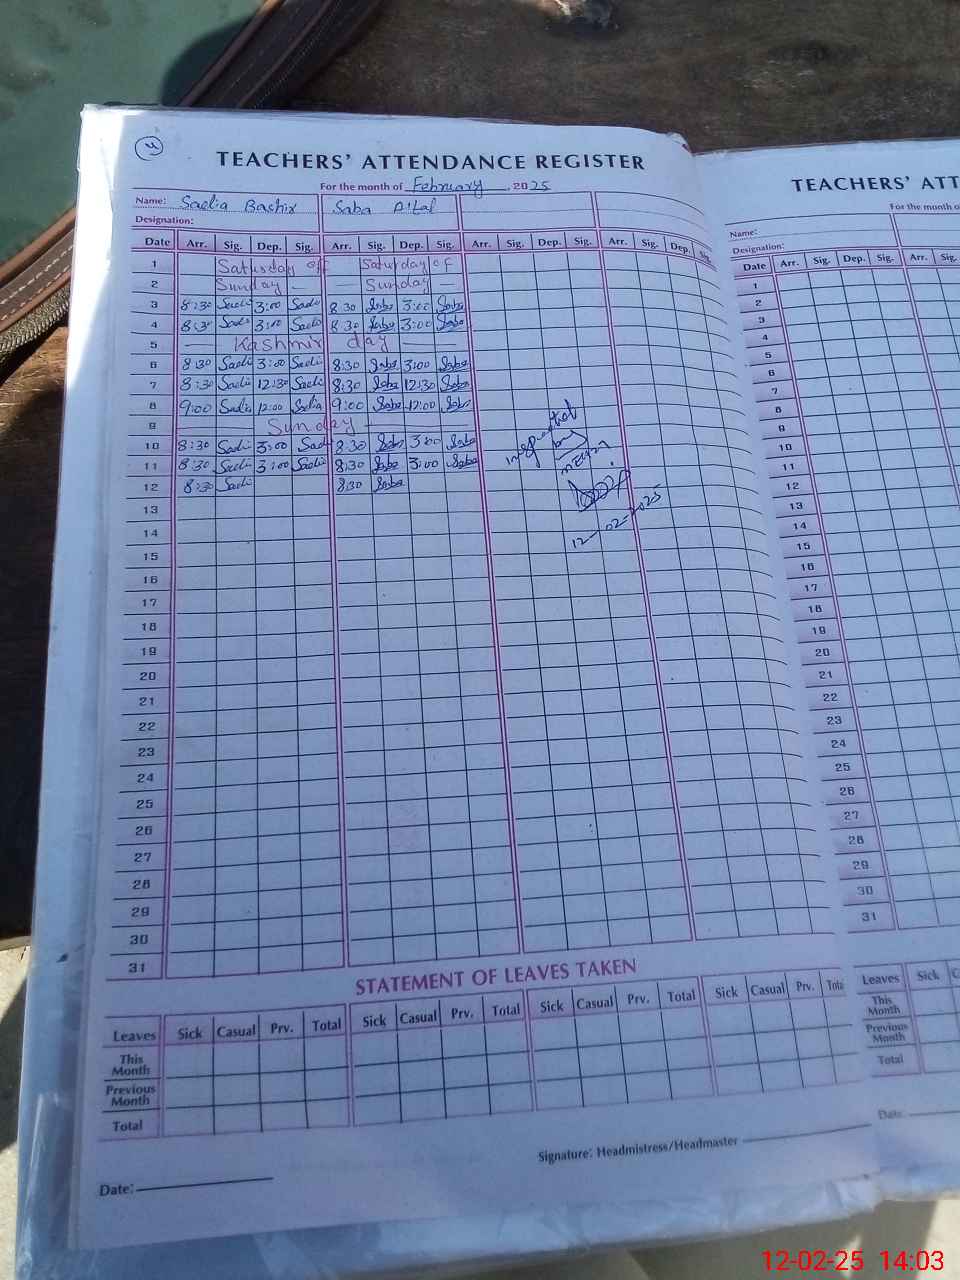 4
TEACHERS' ATTENDANCE REGISTER
For the month of February, 2025
Name: Sadia Bashir Saba
Designation:
Date Arr. Sig. Dep. Sig. Arr. Sig. Dep. Sig. Arr. Sig. Dep. Sig. Arr. Sig. Dep. Sig.
1 Saturday off Saturday of
2 Sunday — Sunday —
3 8:30 Sadi 3:00 Sadi 8 30 Saba 3:00 Saba
4 8:30 Sadi 3:00 Sadi 8 30 Saba 3:00 Saba
5 — Kashmir day —
6 8:30 Sadi 3:00 Sadi 8:30 Saba 3:00 Saba
7 8:30 Sadi 12:30 Sadi 8:30 Saba 12:30 Saba
8 9:00 Sadi 12:00 Sadia 9:00 Saba 12:00 Saba
9 — Sunday —
10 8:30 Sadi 3:00 Sadi 8:30 Saba 3:00 Saba
11 8:30 Sadi 3:00 Sadi 8:30 Saba 3:00 Saba
12 8:30 Sadi 8:30 Saba
13
14
15
16
17
18
19
20
21
22
23
24
25
26
27
28
29
30
31
12-02-2025
STATEMENT OF LEAVES TAKEN
Leaves Sick Casual Prv. Total Sick Casual Prv. Total Sick Casual Prv. Total Sick Casual Prv. Tota
This Month
Previous Month
Total
Signature: Headmistress/Headmaster
Date:
TEACHERS' ATT
For the month o
Name:
Designation:
Date Arr. Sig. Dep. Sig. Arr. Sig.
1
2
3
4
5
6
7
8
9
10
11
12
13
14
15
16
17
18
19
20
21
22
23
24
25
26
27
28
29
30
31
Leaves Sick C
This Month
Previous Month
Total
Date:
12-02-25 14:03